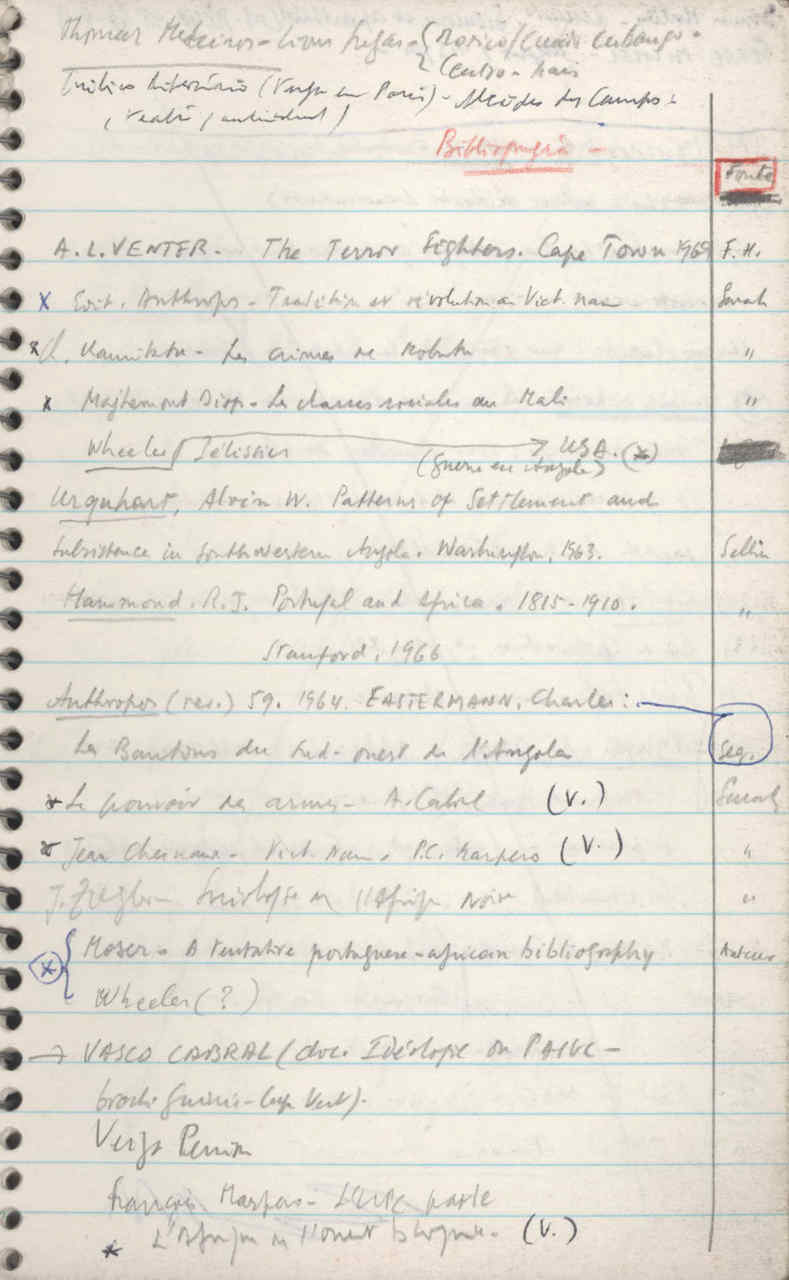 Medeiros - Livros
Centro - Sans
(Verger en Paris) - Alcides dos Campos
(teatro, andividual)
Bibliografia -
Fonte
A. L. VENTER - The Terror Fighters. Cape Town 1969 F. H.
x Edit. Anthropos - Tradition et révolution au Viet-nam Sarah
x Kamitatu - Les crimes de Mobutu "
x Majhemout Diop - Les classes sociales au Mali "
Wheeler / Pélissier → USA. (x)
(Guerre en Angola)
Urquhart, Alvin W. Patterns of Settlement and
Subsistence in Southwestern Angola. Washington, 1963. Sellin
Hammond. R. J. Portugal and Africa. 1815-1910. "
Stanford, 1966
Anthropos (rev.) 59. 1964. EASTERMANN, Charles:
Les Bantous du Sud-ouest de l'Angola Seq.
x Le pouvoir des armes - A. Cabral (V.) Sarah
x Jean Chesnaux - Viet Nam. P.C. Maspero (V.) "
J. Ziegler - Sociologie de l'Afrique noire "
(x) { Moser - A tentative portuguese-african bibliography
Wheeler (?)
→ VASCO CABRAL (doc. Idéologie du PAIGC -
Guinée - Cap Vert).
François Maspero - L'UPC parle
x L'Afrique de l'ouest (V.)